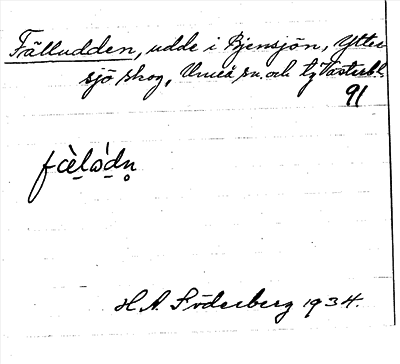 Fälludden, udde i Bjensjön, Ytter
sjö skog, Umeå sn. och tg Västerb.
91
fàlòdn
H. A. Söderberg 1934.